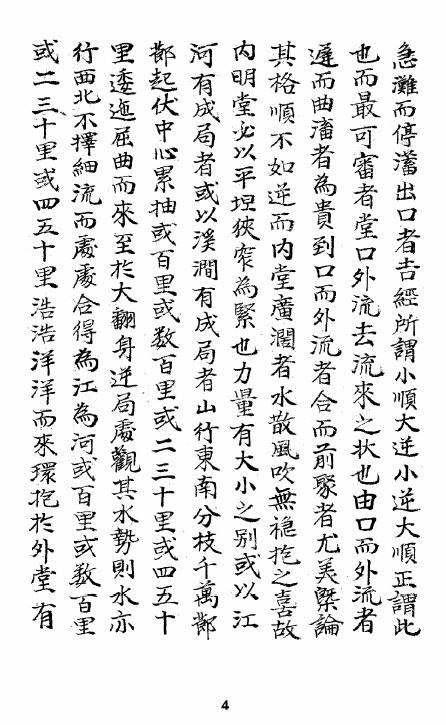 急灘而停滀出口者吉經所謂小順大逆小逆大順正謂此
也而最可審者堂口外流去流來之狀也由口而外流者
遲而曲滀者為貴到口而外流者合而前聚者尤美槩論
其格順不如逆而內堂廣濶者水散風吹無襁抱之喜故
內明堂必以平坦狹窄為緊也力量有大小之別或以江
河有成局者或以溪澗有成局者山行東南分枝千萬鄒
鄒起伏中心累抽或百里或数百里或二三十里或四五十
里逶迤屈曲而來至於大翻身逆局處觀其水勢則水亦
行西北不擇細流而處處合得為江為河或百里或数百里
或二三十里或四五十里浩浩洋洋而來環抱於外堂有
4